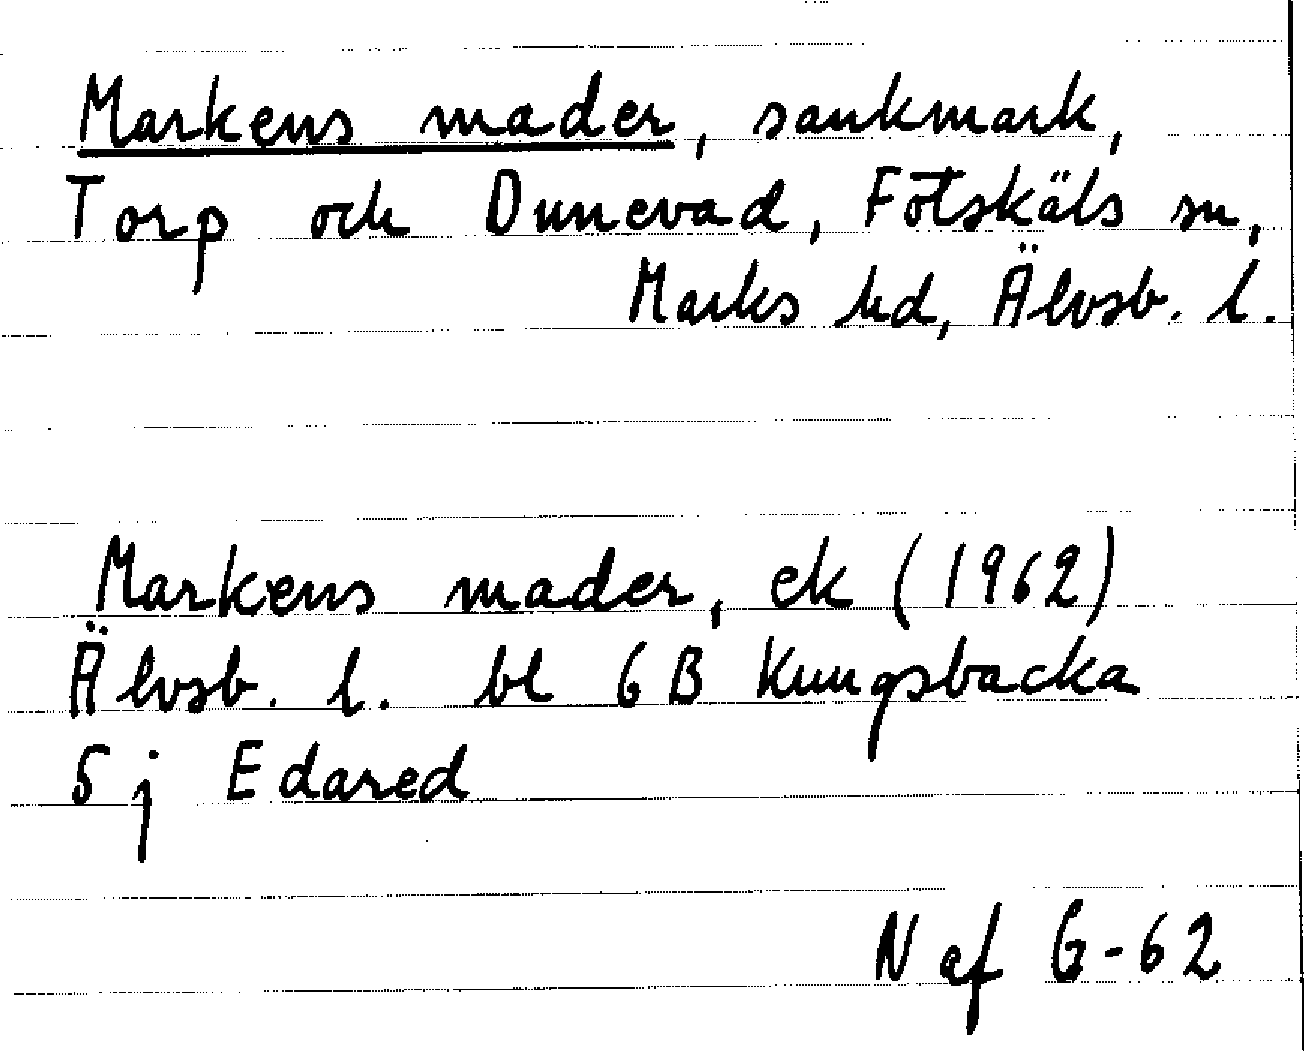 Markens mader, sankmark,
Torp och Dunevad, Fotskäls sn,
Marks hd, Älvsb. l.
Markens mader, ek (1962)
Älvsb. l. bl 6 B Kungsbacka
5 j Edared
N af G-62